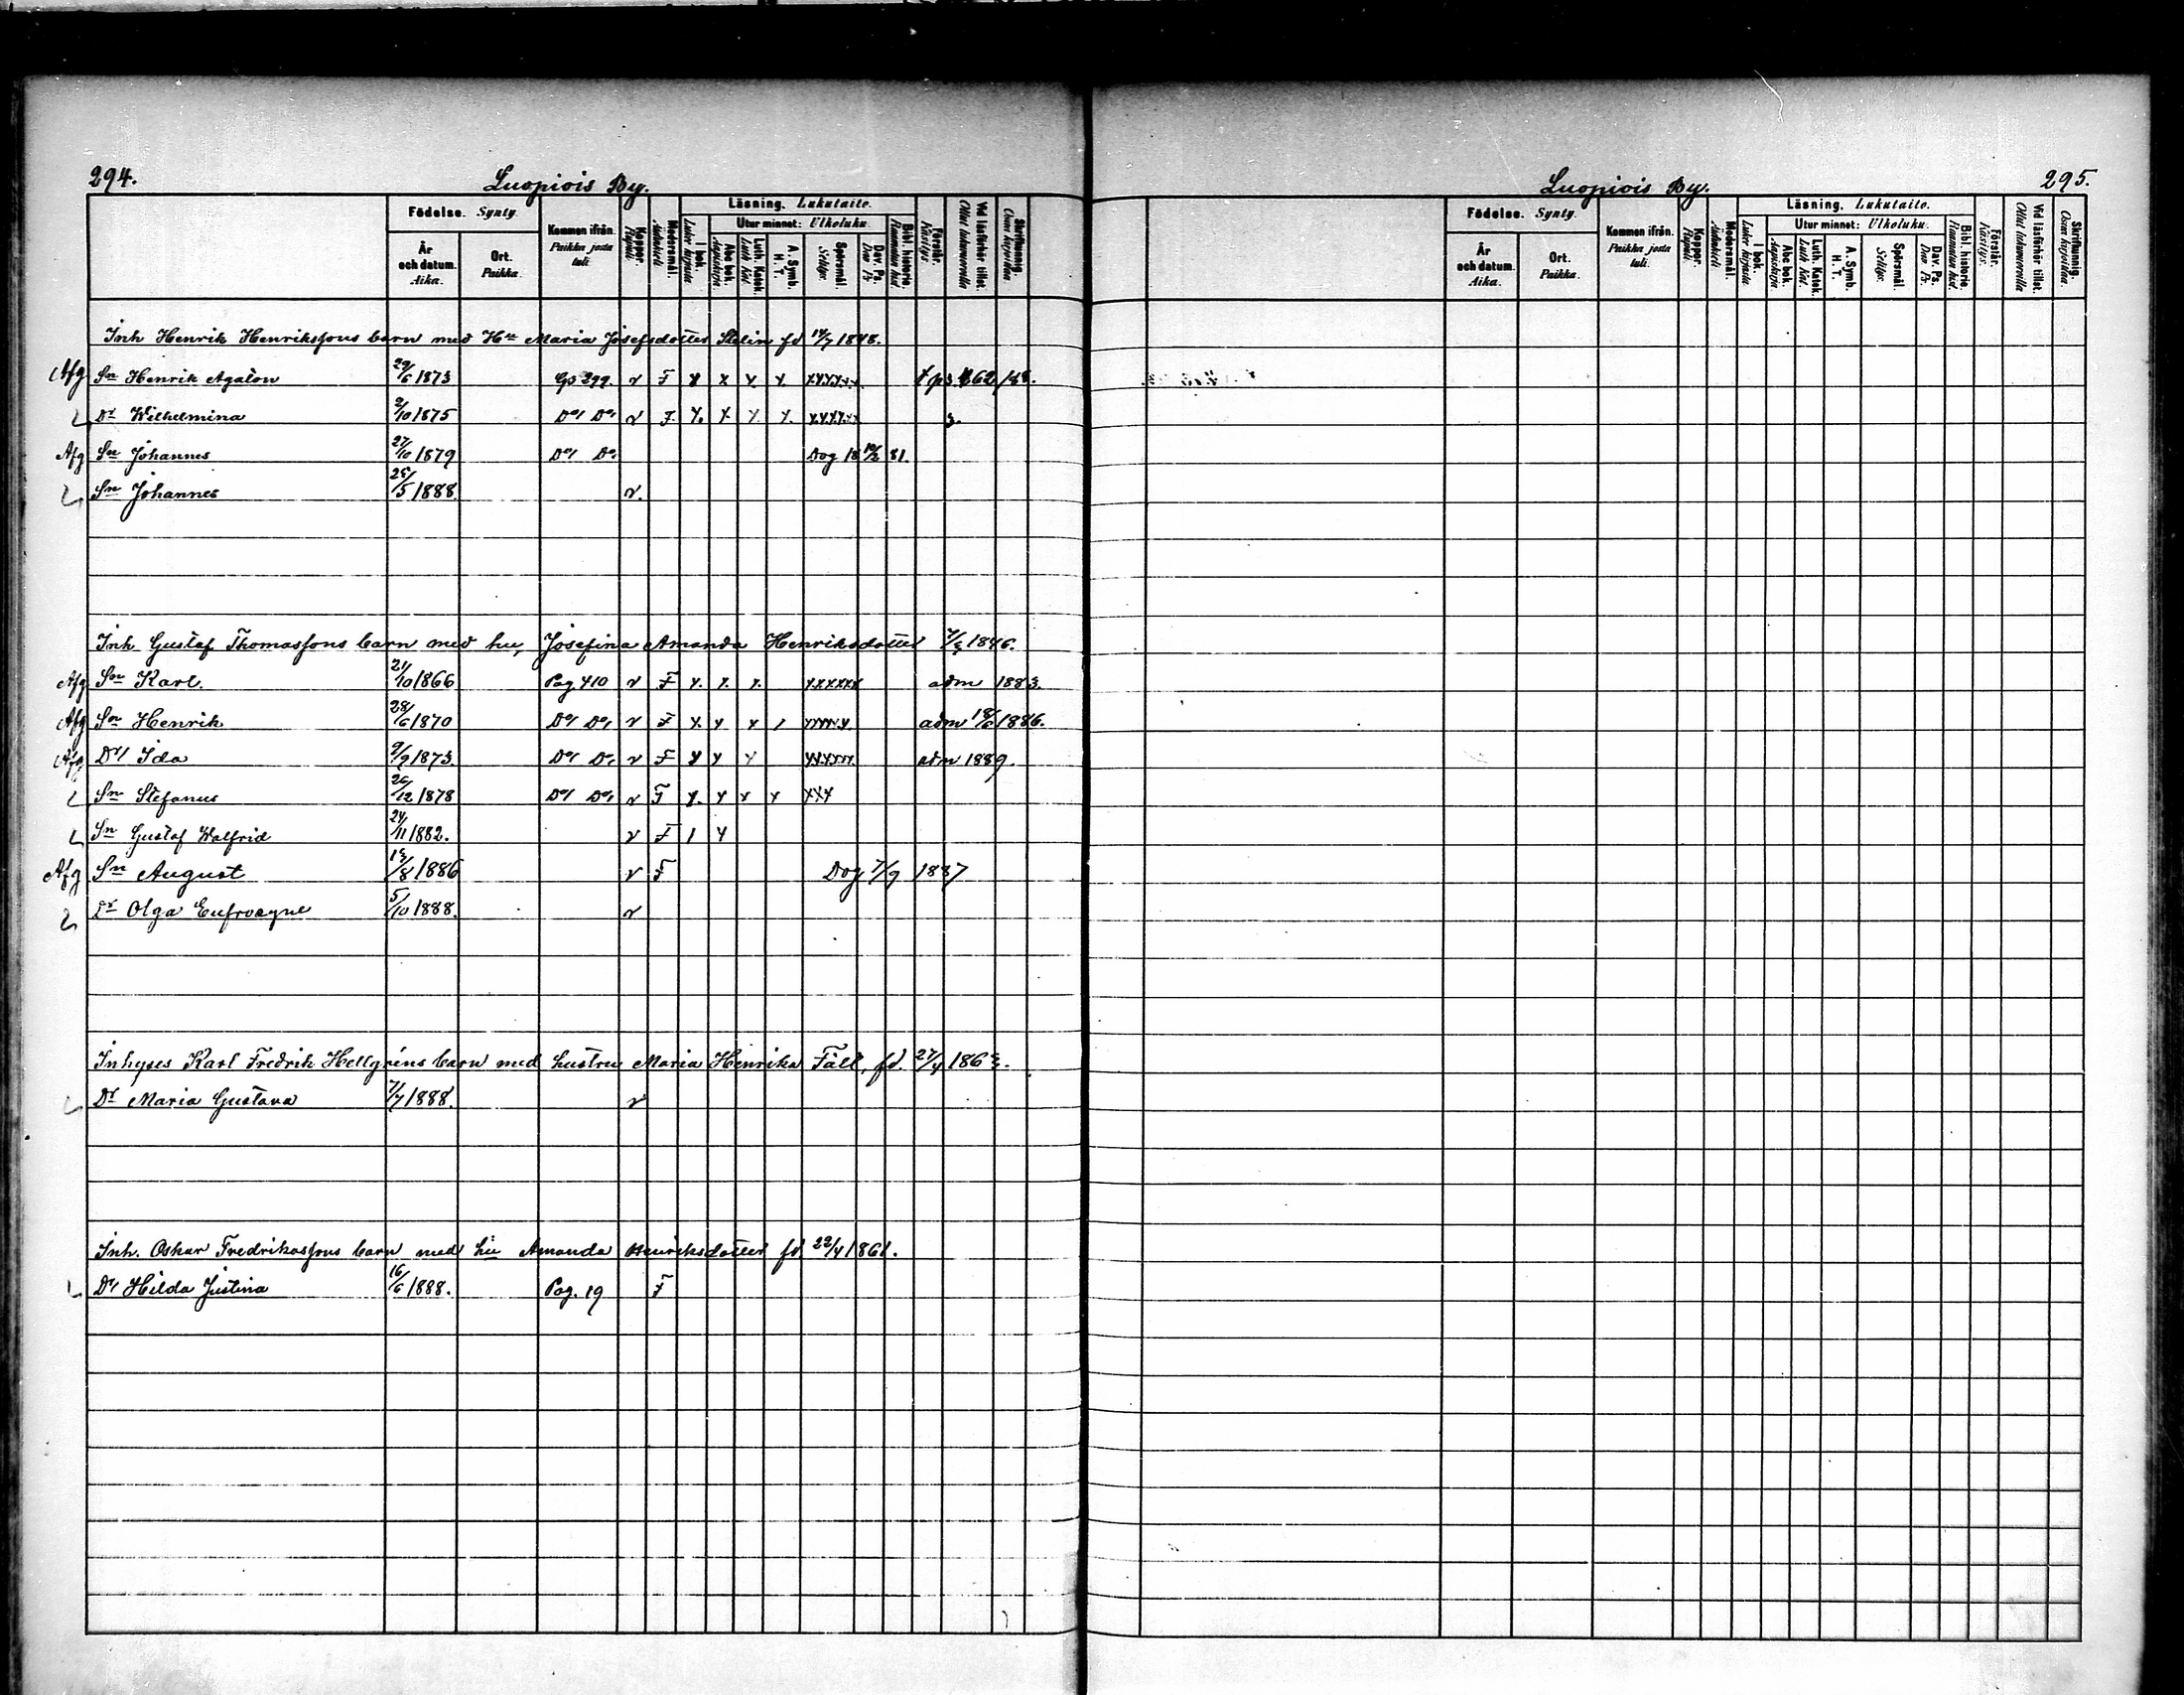 294.
Luopiois By.
Födelse. Synty.
År och datum. Aika.
Ort. Paikka.
Kommen ifrån. Paikka josta tuli.
Koppor. Rupuli
Modersmål. Äidinkieli
Läsning. Lukutaito.
I bok. Lukee kirjasta
Utur minnet: Ulkoluku.
Abc bok. Aapiskirja.
Luth. Katek. Luth. Kat.
A. Symb. H. T.
Spörsmål. Selitys.
Dav. Ps. Dav. Ps.
Bibl. historie. Raamatun hist.
Förstår. Käsitys.
Vid läsförhör tillst. Ollut lukuvuorolla
Skrifkunnig. Osaa kirjoittaa.
Inh Henrik Henrikssons barn med Hu Maria Josefsdotter Stelin fd 14/7 1848.
Afg Sn Henrik Agaton 29/6 1873 Gs 299. v F x x x. x. xxxxxx
Dr Wilhelmina 2/10 1875 Do Do v F. x. x x x. xxxxxx 3.
Afg Sn Johannes 27/10 1879 Do Do Dog 18 81.
Sn Johannes 25/5 1888 v.
Inh Gustaf Thomassons barn med hu, Josefina Amanda Henriksdotter 1846.
Afg Sn Karl. 21/10 1866 Pag 410 v F x. x. x. xxxxxx adm 1883.
Afg Sn Henrik 28/6 1870 Do Do v F x. x x 1 xxxxx adm 1886.
Afg Dr Ida 9/9 1873 Do Do v F x x x xxxxxx adm 1889.
Sn Stefanus 26/12 1878 Do Do v F x. x x x xxx
Sn Gustaf Walfrid 24/11 1882. v F 1 x
Afg Sn August 13/8 1886 v F Dog 7/9 1887
Dr Olga Eufrosyne 5/10 1888. v
Inhyses Karl Fredrik Hellgréns barn med hustru Maria Henrika Fält, fd. 27/4 1863.
Dr Maria Gustava 7/7 1888. v
Inh. Oskar Fredrikssons barn med hu Amanda Henriksdotter fd. 22/4 1861.
Dr Hilda Justina 16/6 1888. Pag. 19 F
Luopiois By.
295.
Födelse. Synty.
År och datum. Aika.
Ort. Paikka.
Kommen ifrån. Paikka josta tuli.
Koppor. Rupuli
Modersmål. Äidinkieli
Läsning. Lukutaito.
I bok. Lukee kirjasta
Utur minnet: Ulkoluku.
Abc bok. Aapiskirja
Luth. Katek. Luth. Kat.
A. Symb. H. T.
Spörsmål. Selitys.
Dav. Ps. Dav. Ps.
Bibl. historie. Raamatun hist.
Förstår. Käsitys.
Vid läsförhör tillst. Ollut lukuvuorolla
Skrifkunnig. Osaa kirjoittaa.